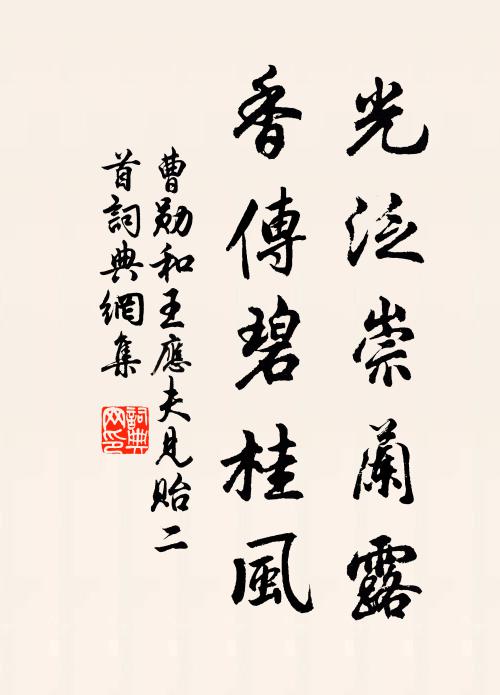 光泛崇蘭露
香傳碧桂風
曹勛和王應夫見貽二
首詞典網集
詞典網印